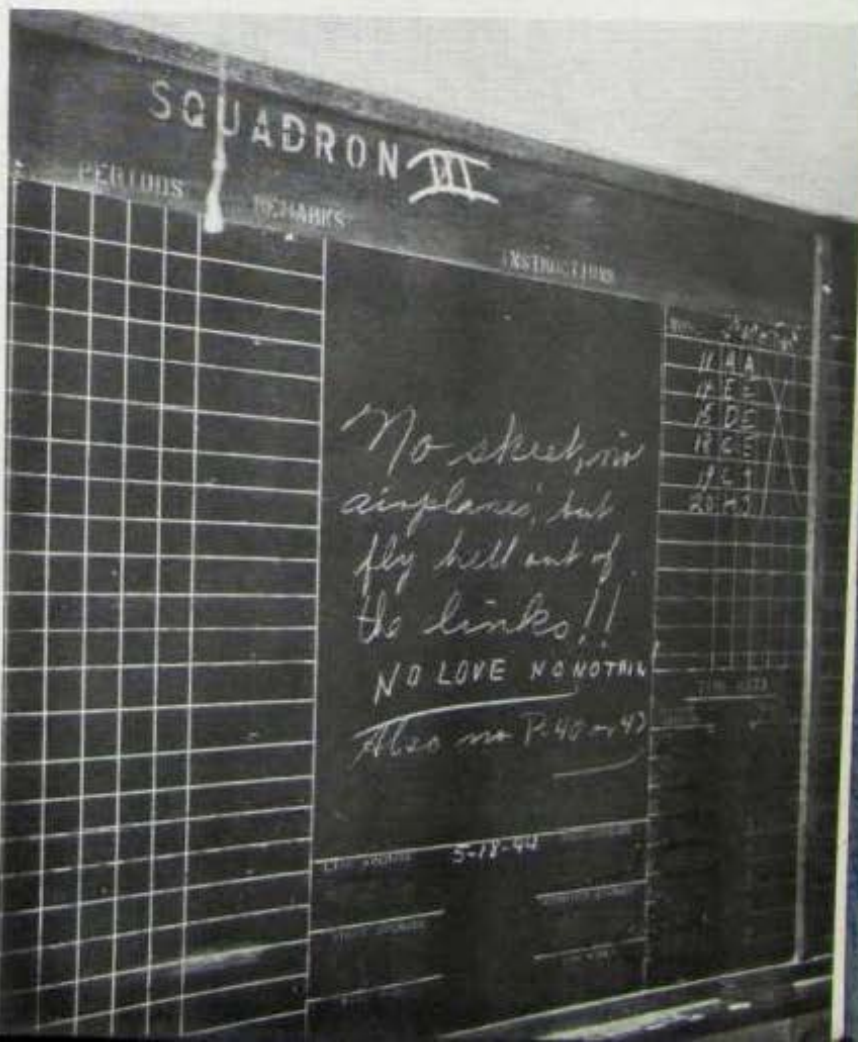 SQUADRON III
PERIODS
REMARKS
INSTRUCTIONS
No skeet, no
airplanes, but
fly hell out of
the links!!
NO LOVE NO NOTHIN
Also no P-40 or 47
11 A A
14 E E
15 D E
18 C E
19 C
20
5-18-44